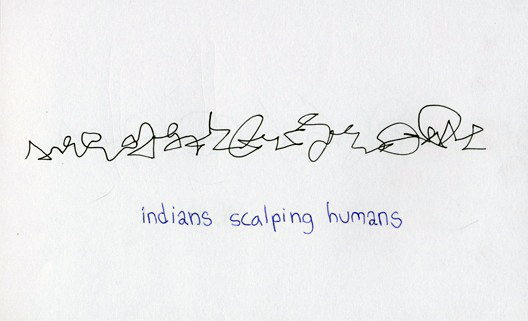 indians scalping humans